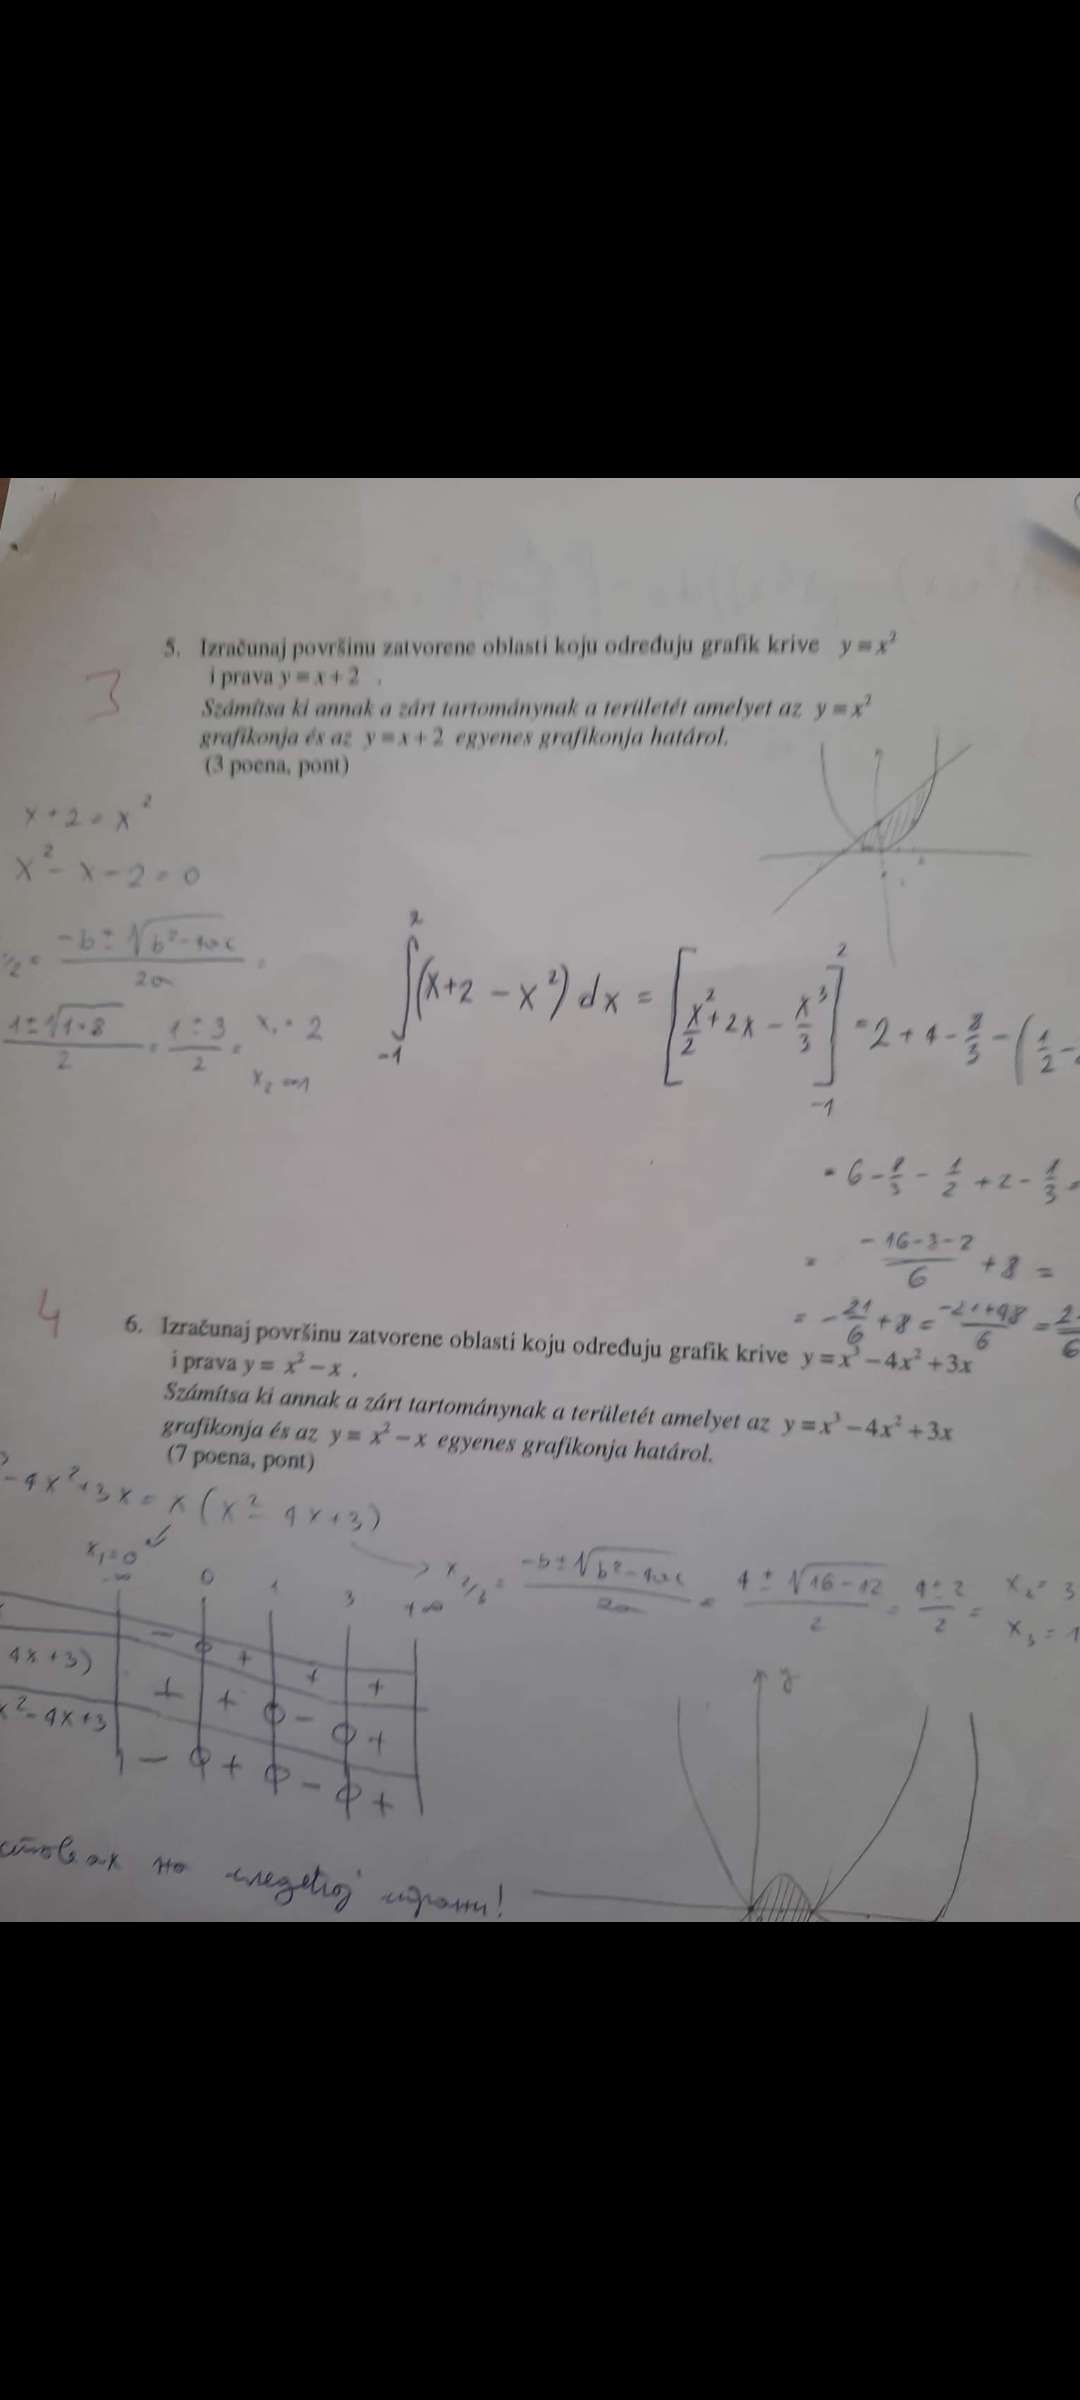 5. Izračunaj površinu zatvorene oblasti koju određuju grafik krive y = x²
i prava y = x + 2 .
Számítsa ki annak a zárt tartománynak a területét amelyet az y = x²
grafikonja és az y = x + 2 egyenes grafikonja határol.
(3 poena, pont)
3
x + 2 = x²
x² - x - 2 = 0
1/2 = (-b ± √(b² - 4ac)) / 2a
(1 ± √(1+8)) / 2 = (1 ± 3) / 2 = x₁ = 2
x₂ = -1
∫₋₁² (x+2 - x²) dx = [x²/2 + 2x - x³/3]₋₁² = 2 + 4 - 8/3 - (1/2 -
= 6 - 8/3 - 1/2 + 2 - 1/3 =
= (-16-3-2)/6 + 8 =
= -21/6 + 8 = (-21+48)/6 =
4
6. Izračunaj površinu zatvorene oblasti koju određuju grafik krive y = x³ - 4x² + 3x
i prava y = x² - x .
Számítsa ki annak a zárt tartománynak a területét amelyet az y = x³ - 4x² + 3x
grafikonja és az y = x² - x egyenes grafikonja határol.
(7 poena, pont)
- 4x² + 3x = x (x² - 4x + 3)
x₁ = 0
x₂/₃ = (-b ± √(b² - 4ac)) / 2a = (4 ± √(16-12)) / 2 = (4 ± 2) / 2 = x₂ = 3
x₃ = 1
-∞ 0 1 3 +∞
- 0 + + +
4x + 3) + + 0 - 0 +
x² - 4x + 3 - 0 + 0 - 0 +
y
на следећој страни!